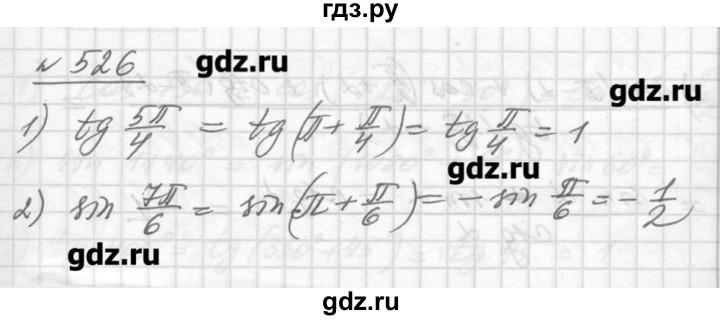 гдз.ру
№ 526
gdz.ru
gdz.ru
1) tg 5π/4 = tg(π + π/4) = tg π/4 = 1
gdz.ru
2) sin 7π/6 = sin(π + π/6) = - sin π/6 = - 1/2
gdz.ru
gdz.ru